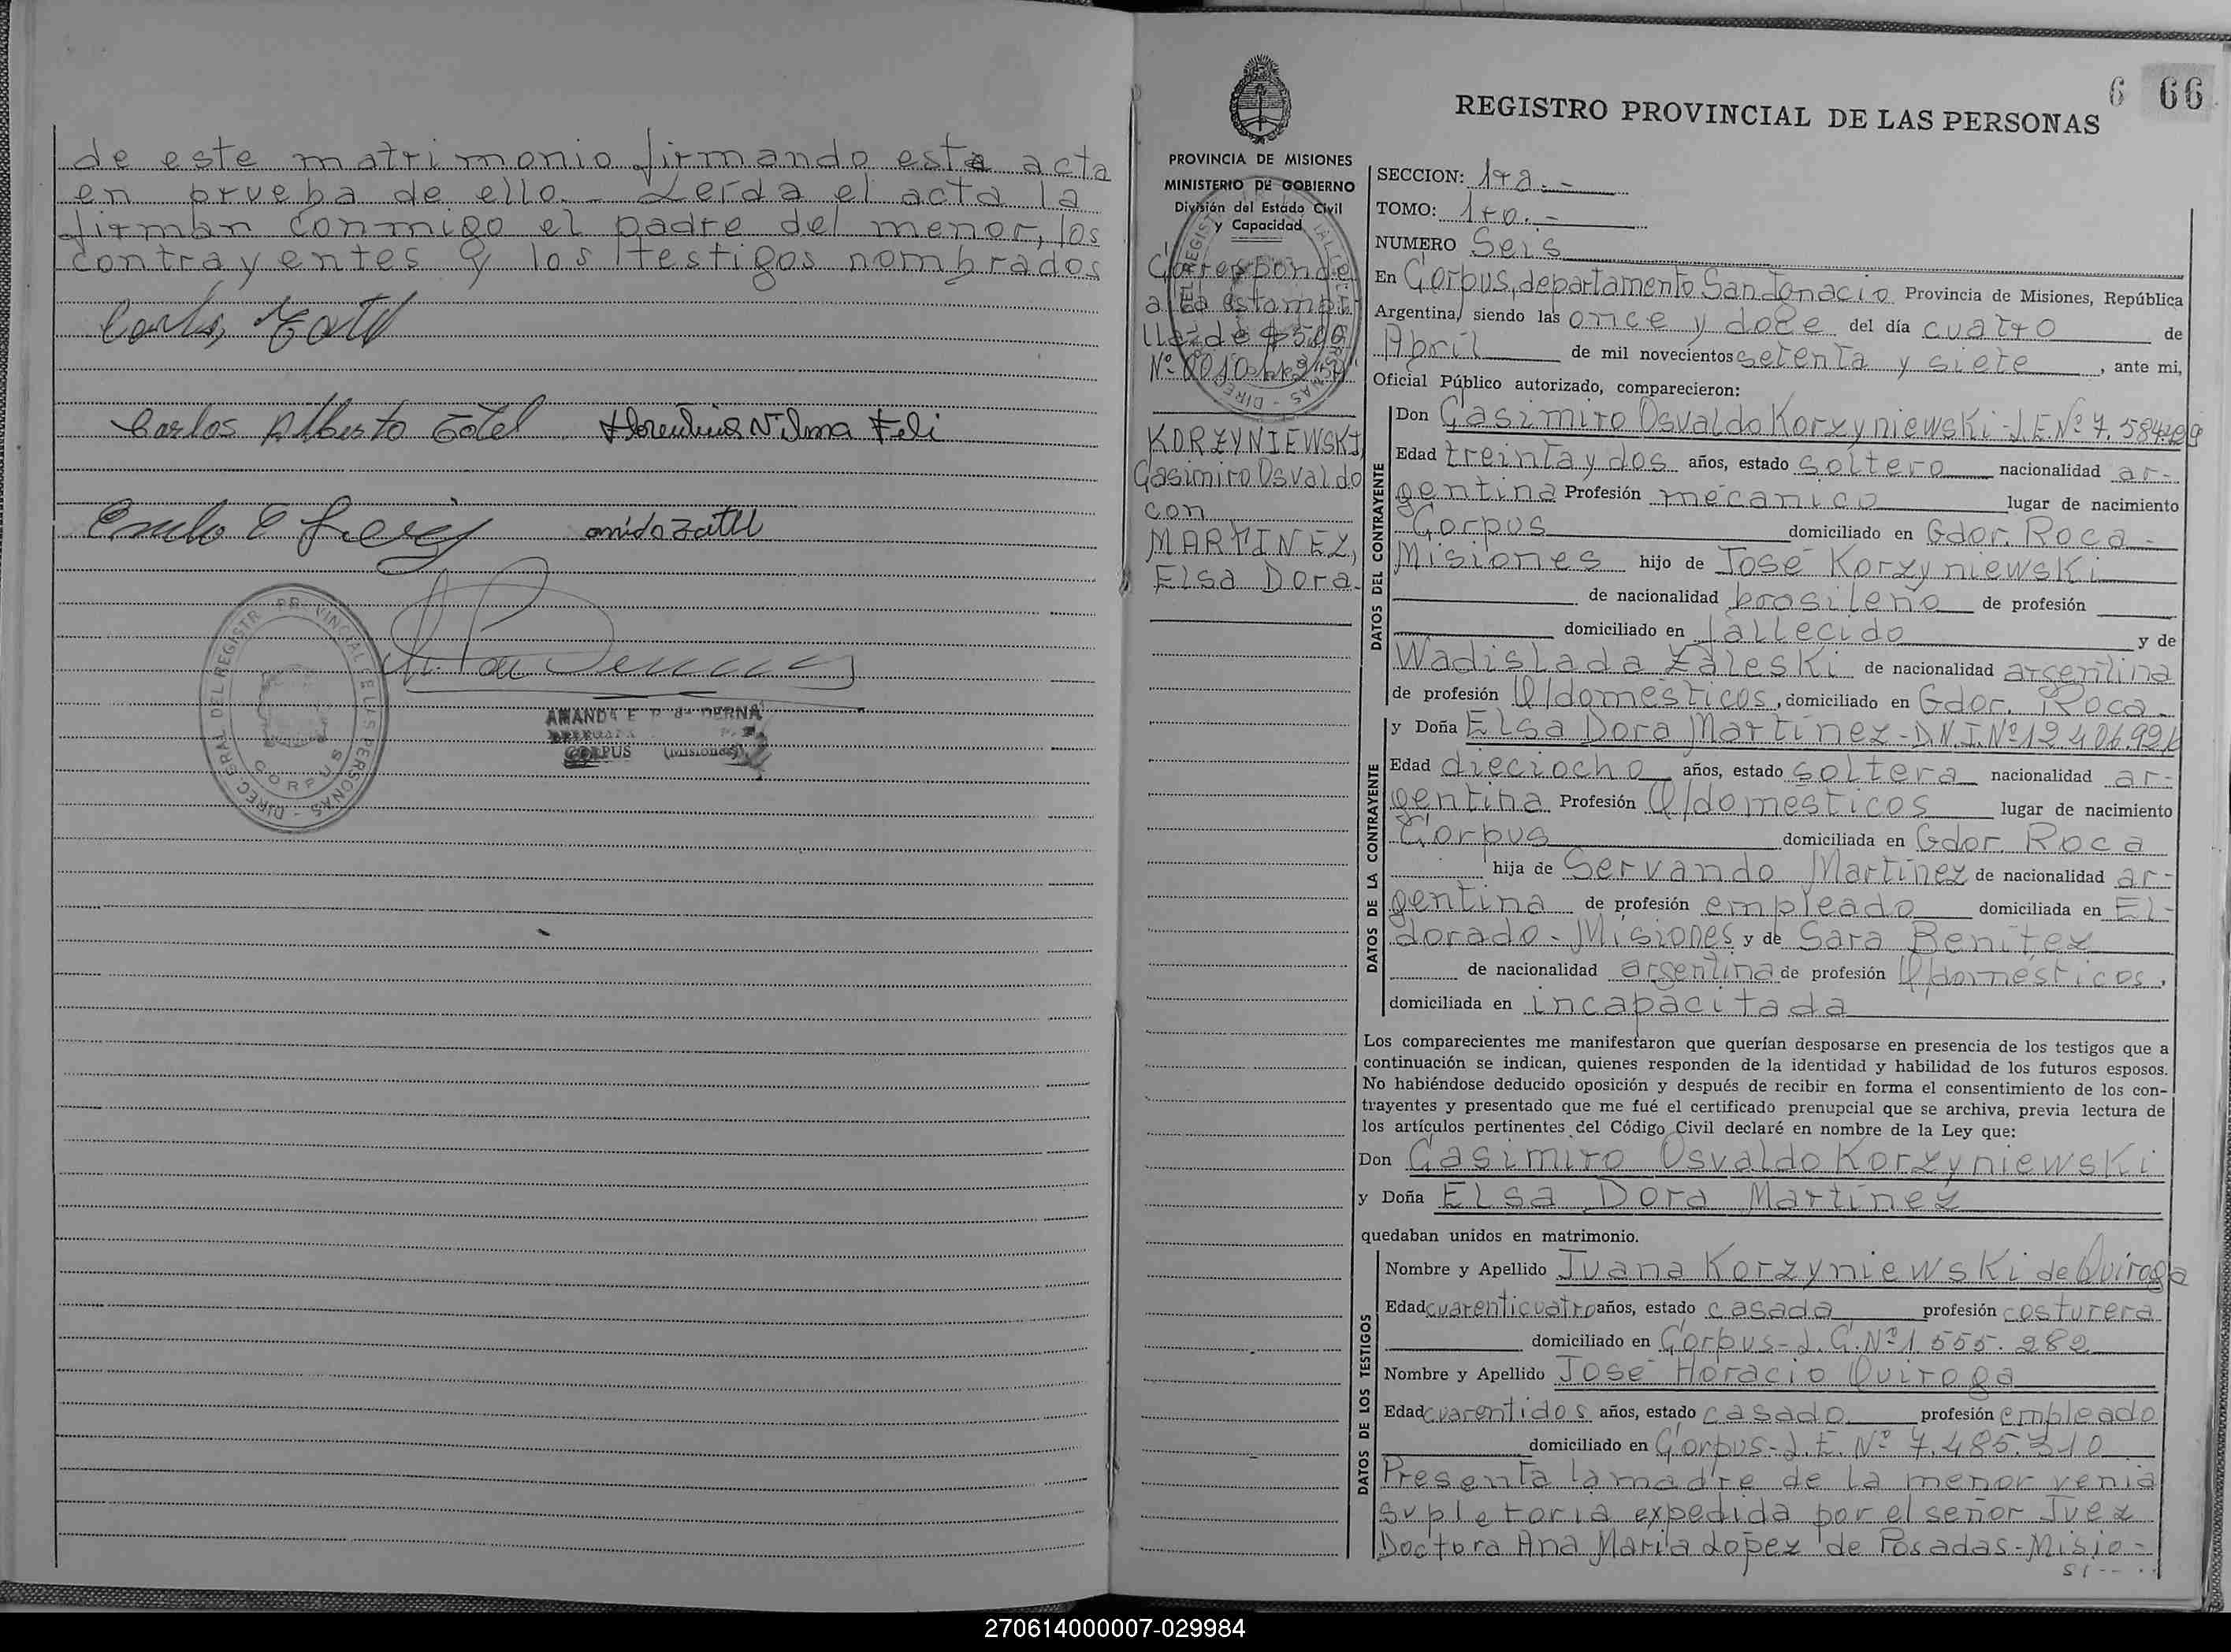 de este matrimonio firmando esta acta
en prueba de ello.- Leída el acta la
firman conmigo el padre del menor, los
contrayentes y los testigos nombrados
Carlos Alberto
Vilma
AMANDA E. P. de DERNA
CORPUS (Misiones)
CORPUS
6 66
REGISTRO PROVINCIAL DE LAS PERSONAS
PROVINCIA DE MISIONES
MINISTERIO DE GOBIERNO
División del Estado Civil
y Capacidad
Corresponde
a la estampi-
lla de $ 500
Nº
KORZYNIEWSKI,
Casimiro Osvaldo
con
MARTINEZ,
Elsa Dora.
SECCION: 1ra.-
TOMO: 1ro.-
NUMERO Seis
En Corpus, departamento San Ignacio Provincia de Misiones, República
Argentina, siendo las once y doce del día cuatro de
Abril de mil novecientos setenta y siete, ante mi,
Oficial Público autorizado, comparecieron:
DATOS DEL CONTRAYENTE
Don Casimiro Osvaldo Korzyniewski-L.E.Nº
Edad treinta y dos años, estado soltero nacionalidad ar-
gentina Profesión mecánico lugar de nacimiento
Corpus domiciliado en Gdor. Roca-
Misiones hijo de José Korzyniewski
de nacionalidad brasileño de profesión
domiciliado en fallecido y de
Wadislada Zaleski de nacionalidad argentina
de profesión Q/domésticos, domiciliado en Gdor. Roca-
DATOS DE LA CONTRAYENTE
y Doña Elsa Dora Martínez-D.N.I.Nº
Edad dieciocho años, estado soltera nacionalidad ar-
gentina Profesión Q/domésticos lugar de nacimiento
Corpus domiciliada en Gdor. Roca
hija de Servando Martínez de nacionalidad ar-
gentina de profesión empleado domiciliada en El-
dorado-Misiones y de Sara Benítez
de nacionalidad argentina de profesión Q/domésticos,
domiciliada en incapacitada
Los comparecientes me manifestaron que querían desposarse en presencia de los testigos que a
continuación se indican, quienes responden de la identidad y habilidad de los futuros esposos.
No habiéndose deducido oposición y después de recibir en forma el consentimiento de los con-
trayentes y presentado que me fué el certificado prenupcial que se archiva, previa lectura de
los artículos pertinentes del Código Civil declaré en nombre de la Ley que:
Don Casimiro Osvaldo Korzyniewski
y Doña Elsa Dora Martínez
quedaban unidos en matrimonio.
DATOS DE LOS TESTIGOS
Nombre y Apellido Juana Korzyniewski de Quiroga
Edad cuarenticuatro años, estado casada profesión costurera
domiciliado en Corpus-L.C.Nº 1.555.282
Nombre y Apellido José Horacio Quiroga
Edad cuarentidos años, estado casado profesión empleado
domiciliado en Corpus-L.E.Nº 7.485.310
Presenta la madre de la menor venia
supletoria expedida por el señor Juez
Doctora Ana María López de Posadas-Misio-
270614000007-029984